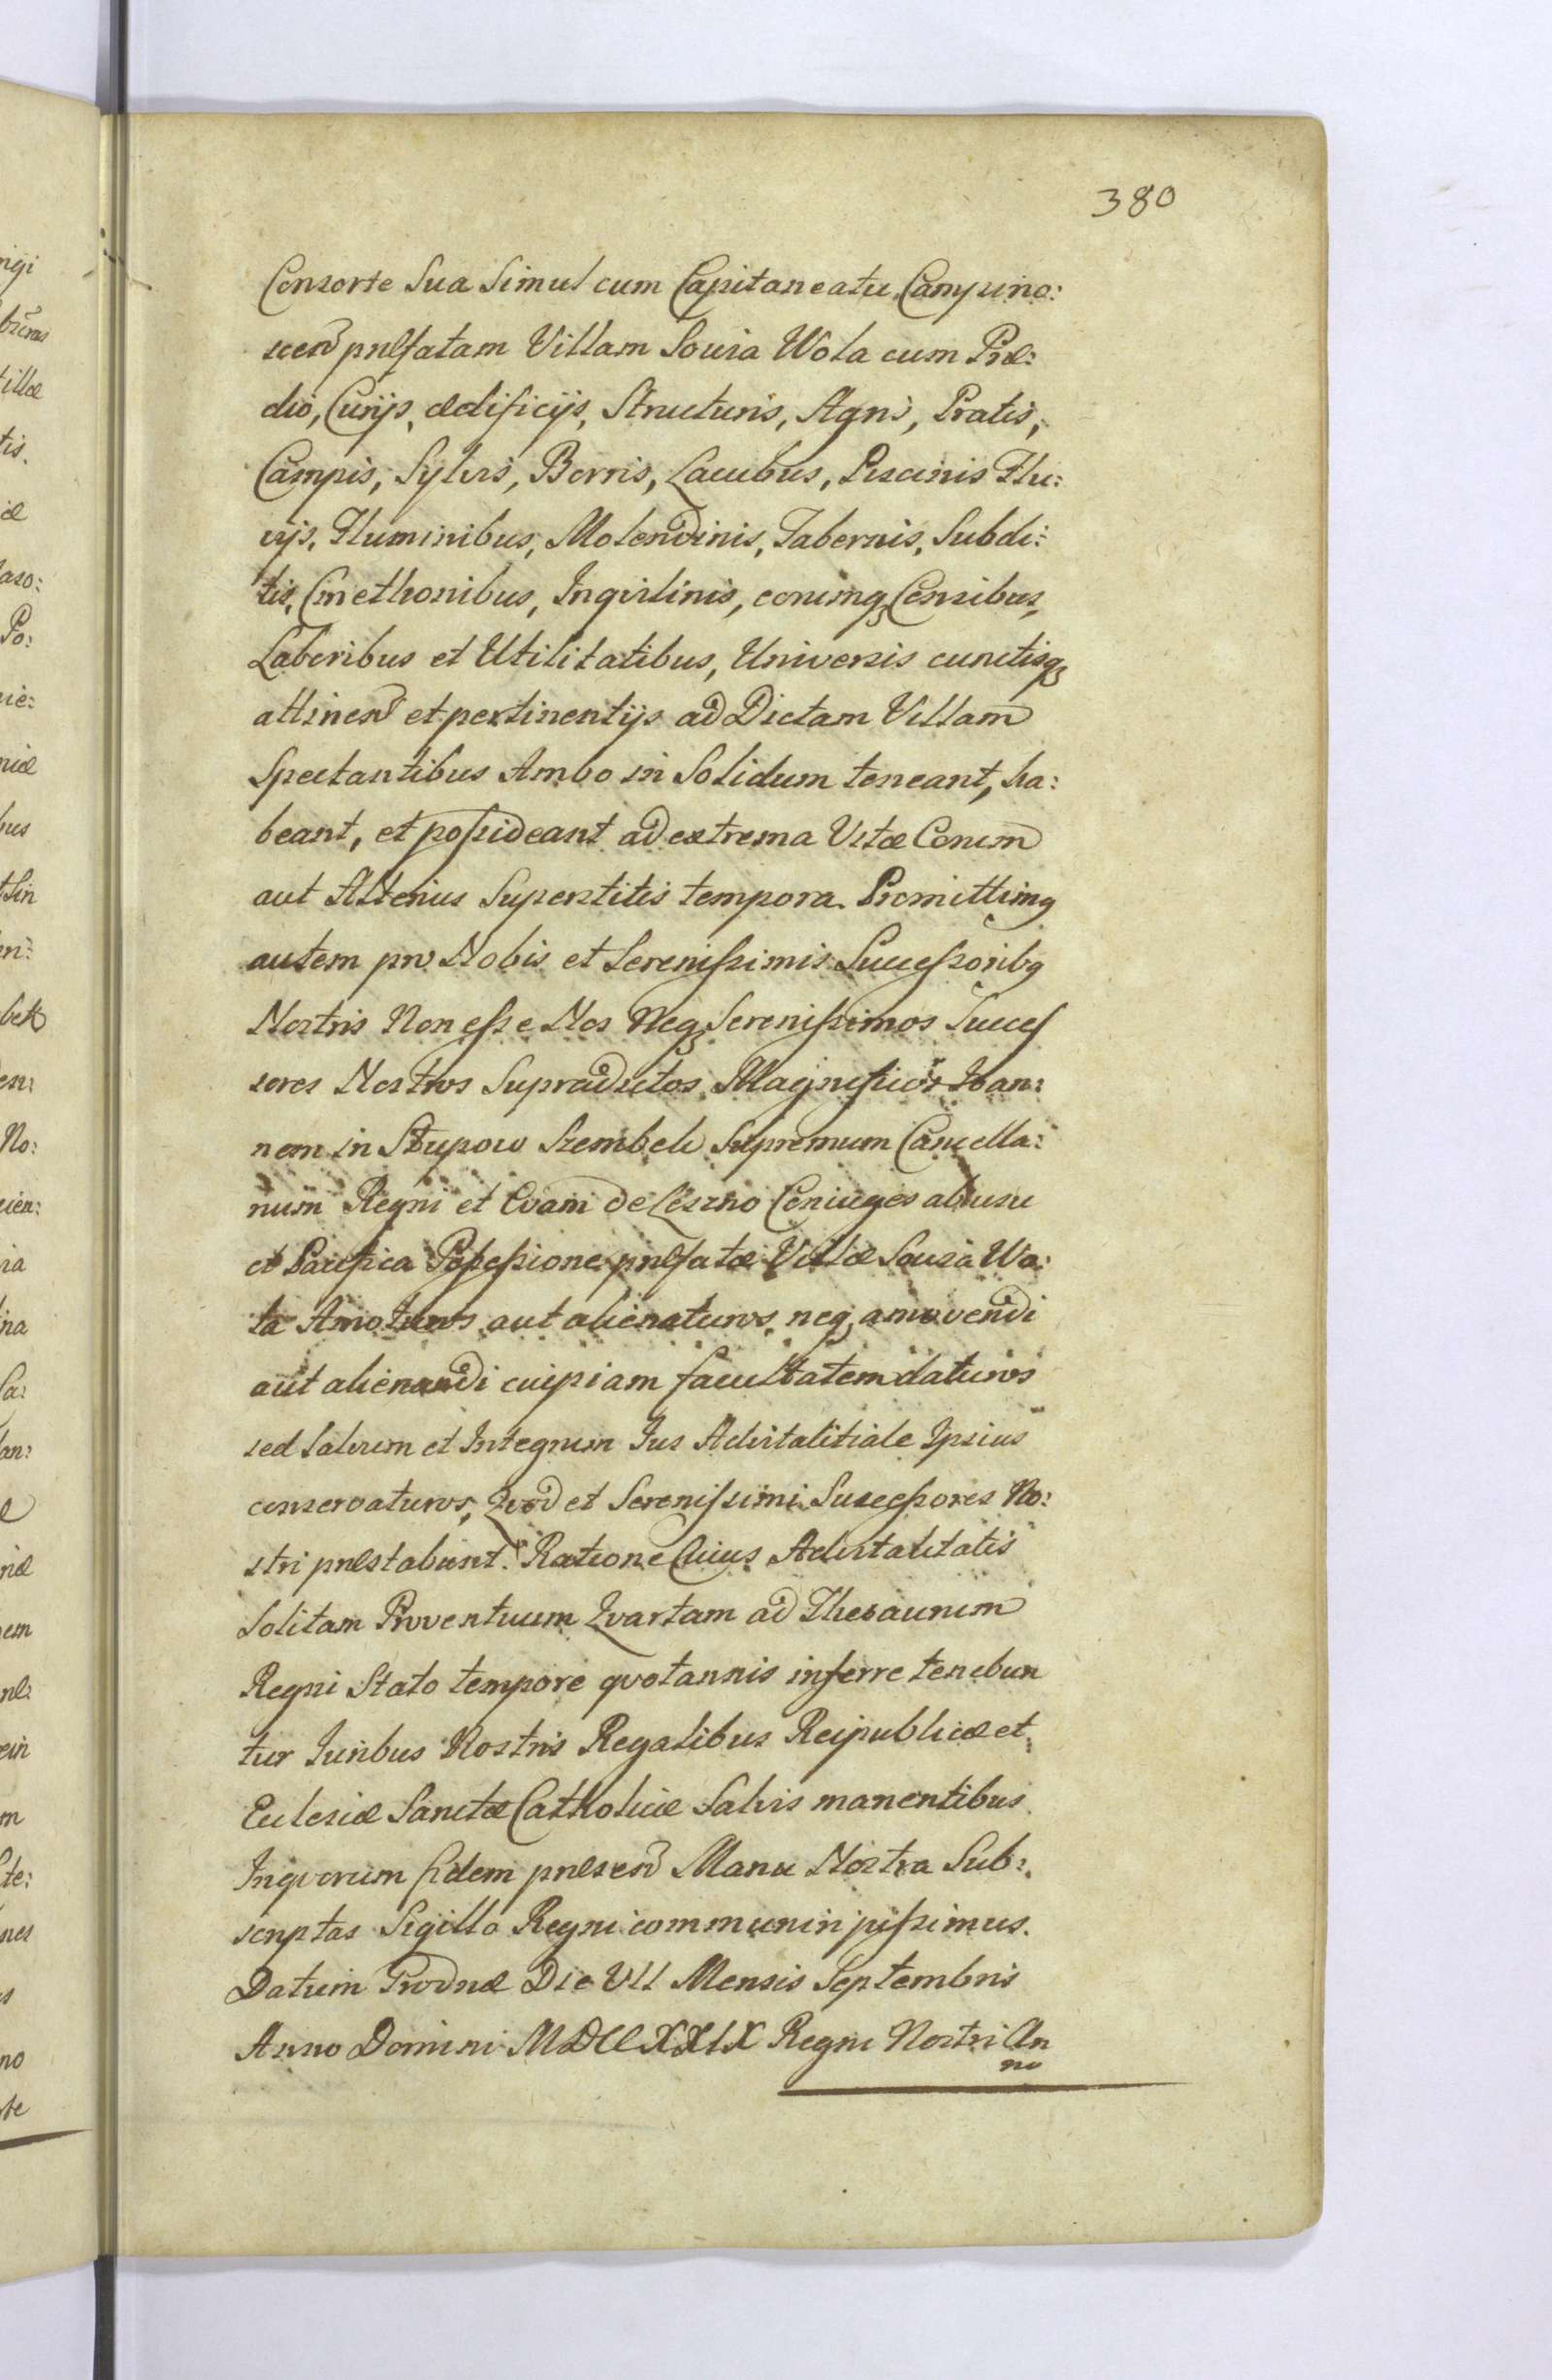 380
Consorte Sua Simul cum Capitaneatu Campino:
scen praefatam Villam Sowia Wola cum Præ:
dio, Curijs, ædificijs, Structuris, Agris, Pratis,
Campis, Sylvis, Borris, Lacubus, Piscinis Flu:
vijs, Fluminibus, Molendinis, Tabernis, Subdi:
tis, Cmethonibus, Inqvilinis, eorumq Censibus,
Laboribus et Utilitatibus, Universis cunctisq
attinen et pertinentijs ad Dictam Villam
Spectantibus Ambo in Solidum teneant, ha:
beant, et possideant ad extrema Vitæ Eorum
aut Alterius Superstitis tempora. Promittimq
autem pro Nobis et Serenissimis Successoribq
Nostris Non esse Nos Neq Serenissimos Succes
sores Nostros Supradictos Magnificos Ioan:
nem in Słupow Szembek Supremum Cancella:
rium Regni et Evam de Leszno Coniuges ab usu
et Pacifica Possessione præfatæ Villæ Sowia Wo:
la Amoturos aut alienaturos, neq amovendi
aut alienandi cuipiam facultatem daturos
sed Salvum et Integrum Ius Advitalitiale Ipsius
conservaturos, Qvod et Serenissimi Successores No:
stri præstabunt. Ratione Cuius Advitalitatis
Solitam Proventuum Qvartam ad Thesaurum
Regni Stato tempore qvotannis inferre tenebun
tur Iuribus Nostris Regalibus Reipublicæ et
Eclesiæ Sanctæ Catholicæ Salvis manentibus
Inqvorum fidem præsen Manu Nostra Sub:
scriptas Sigillo Regni communiri jussimus.
Datum Grodnæ Die VII Mensis Septembris
Anno Domini MDCCXXIX Regni Nostri An
no